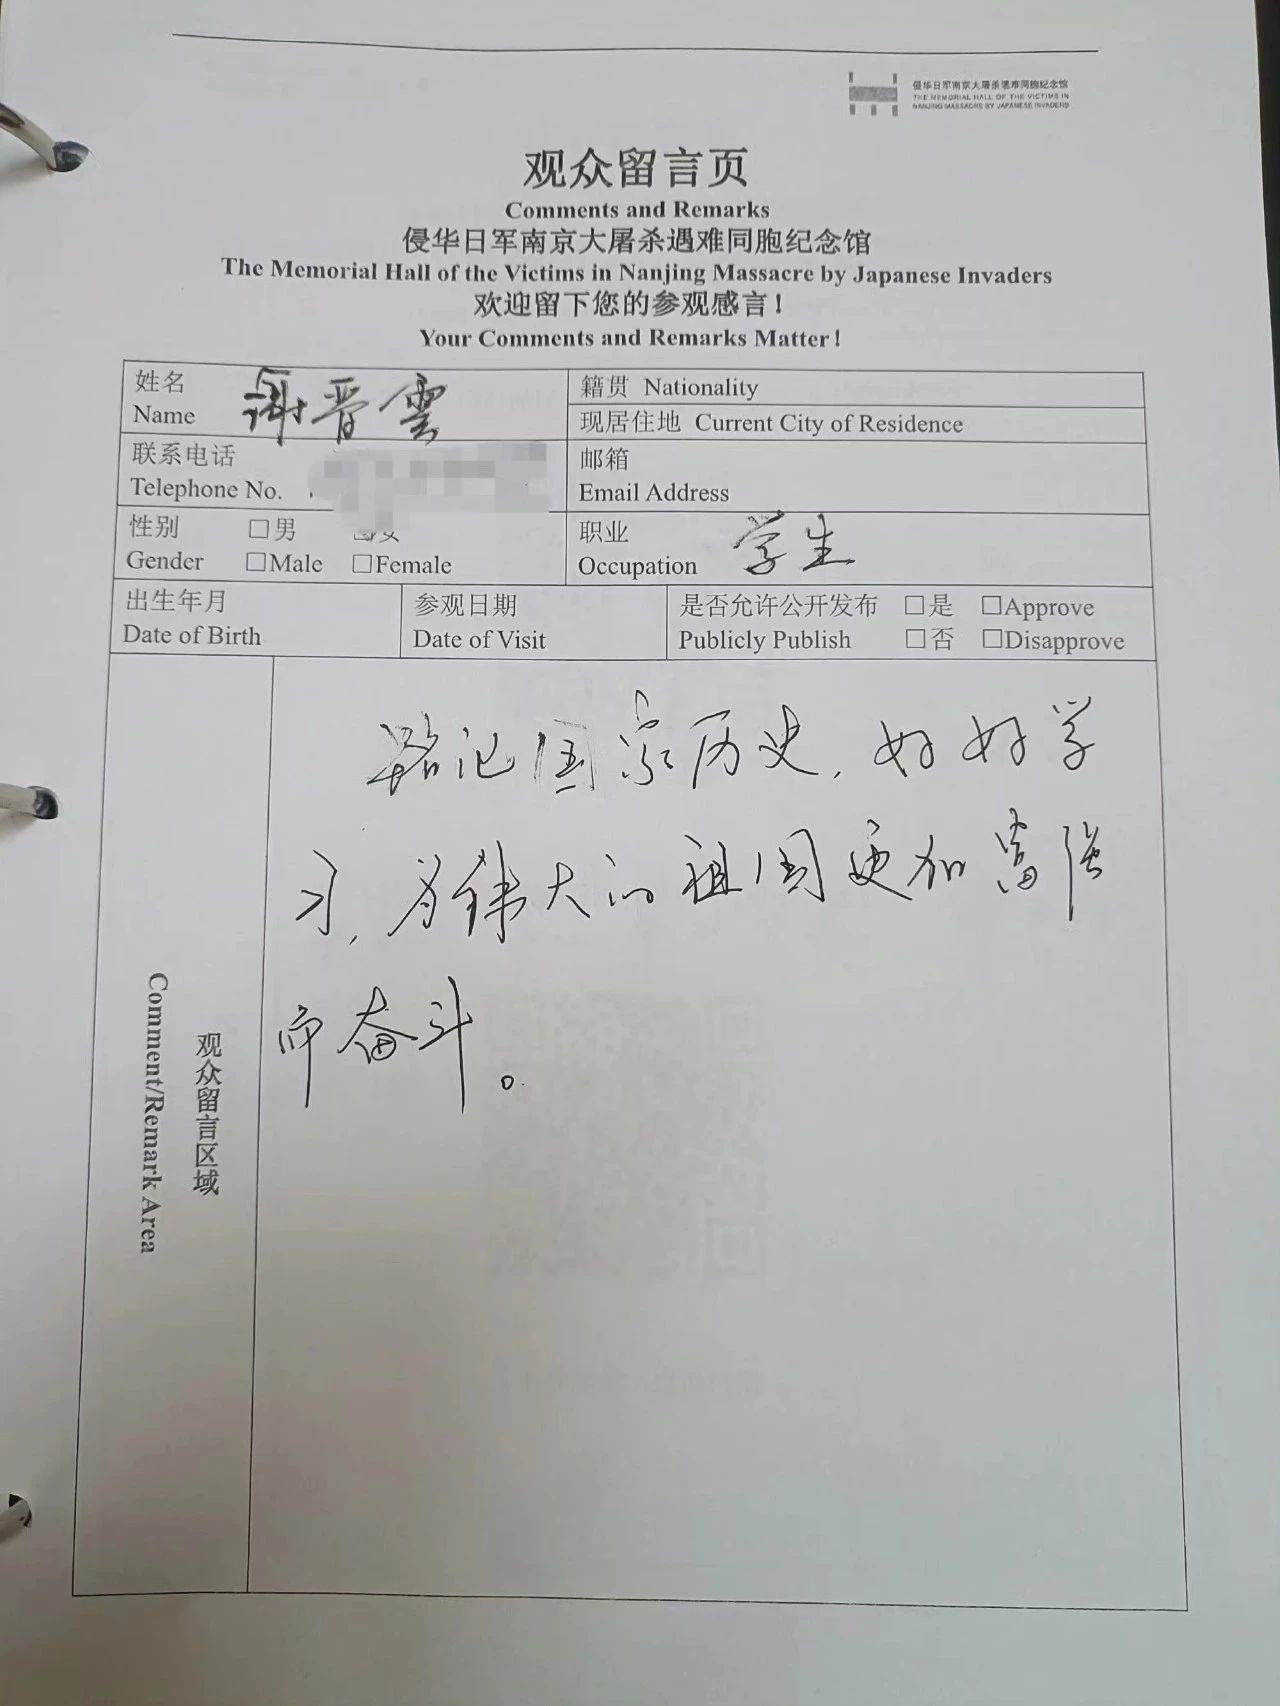 侵华日军南京大屠杀遇难同胞纪念馆
THE MEMORIAL HALL OF THE VICTIMS IN
NANJING MASSACRE BY JAPANESE INVADERS
观众留言页
Comments and Remarks
侵华日军南京大屠杀遇难同胞纪念馆
The Memorial Hall of the Victims in Nanjing Massacre by Japanese Invaders
欢迎留下您的参观感言！
Your Comments and Remarks Matter!
姓名 谢晋雲
Name
籍贯 Nationality
现居住地 Current City of Residence
联系电话
Telephone No.
邮箱
Email Address
性别 □男
Gender □Male □Female
职业 学生
Occupation
出生年月
Date of Birth
参观日期
Date of Visit
是否允许公开发布 □是 □Approve
Publicly Publish □否 □Disapprove
观众留言区域
Comment/Remark Area
铭记国家历史，好好学
习，为伟大的祖国更加富强
而奋斗。